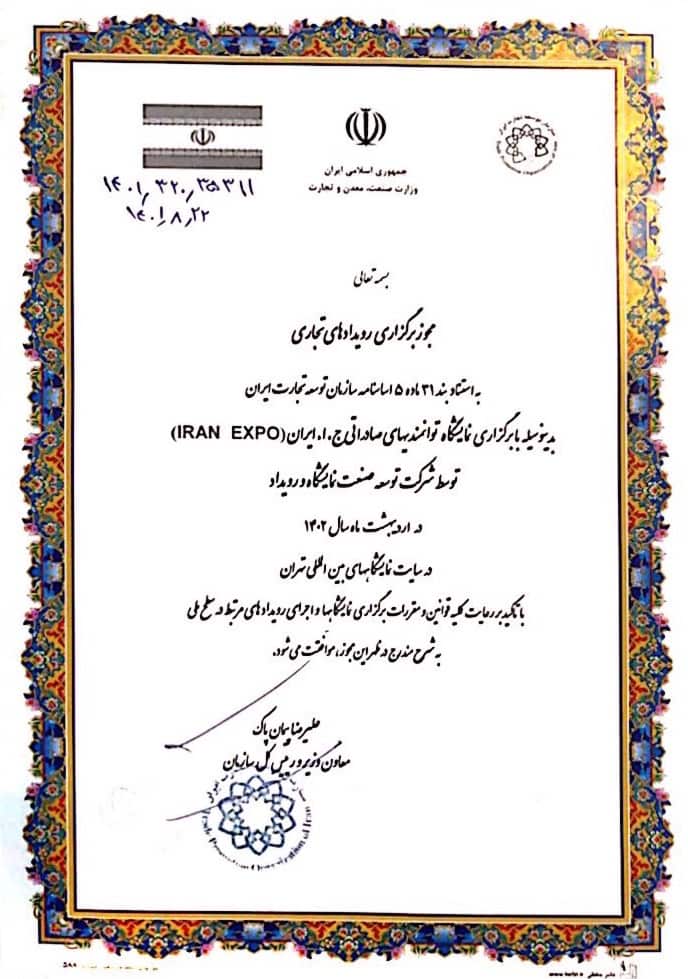 جمهوری اسلامی ایران
وزارت صنعت، معدن و تجارت
۱۴۰۱٫۸٫۲۲
بسمه تعالی
مجوز برگزاری رویدادهای تجاری
به استناد بند ۳۱ ماده ۵ اساسنامه سازمان توسعه تجارت ایران
بدینوسیله با برگزاری نمایشگاه توانمندیهای صادراتی ج.ا.ایران (IRAN EXPO)
توسط شرکت توسعه صنعت نمایشگاه و رویداد
در اردیبهشت ماه سال ۱۴۰۲
در سایت نمایشگاههای بین المللی تهران
با تاکید بر رعایت کلیه قوانین و مقررات برگزاری نمایشگاهها و اجرای رویدادهای مرتبط در سطح ملی
به شرح مندرج در ظهر این مجوز، موافقت می شود.
علیرضا پیمان پاک
معاون وزیر و رییس کل سازمان
Trade Promotion Organization of Iran